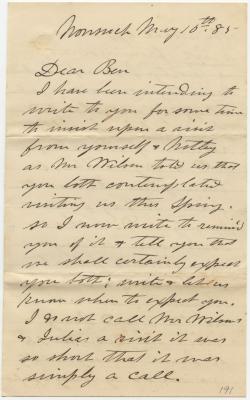 Norwich May 10th 85-
Dear Ben
I have been intending to
write to you for some time
to insist upon a visit
from yourself & Notty
as Mr Wilson told us that
you both contemplated
visiting us this Spring.
so I now write to remind
you of it & tell you that
we shall certainly expect
you both; write & let us
know when to expect you.
I do not call Mr Wilson's
& Julia's a visit it was
so short that it was
simply a call.
191